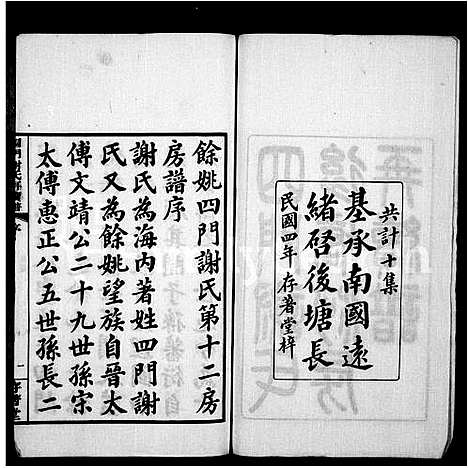 共計十集
基承南國遠
緒啓後塘長
民國四年存著堂梓
餘姚四門謝氏第十二房
房譜序
謝氏為海内著姓四門謝
氏又為餘姚望族自晉太
傅文靖公二十九世孫宋
太傅惠正公五世孫長二